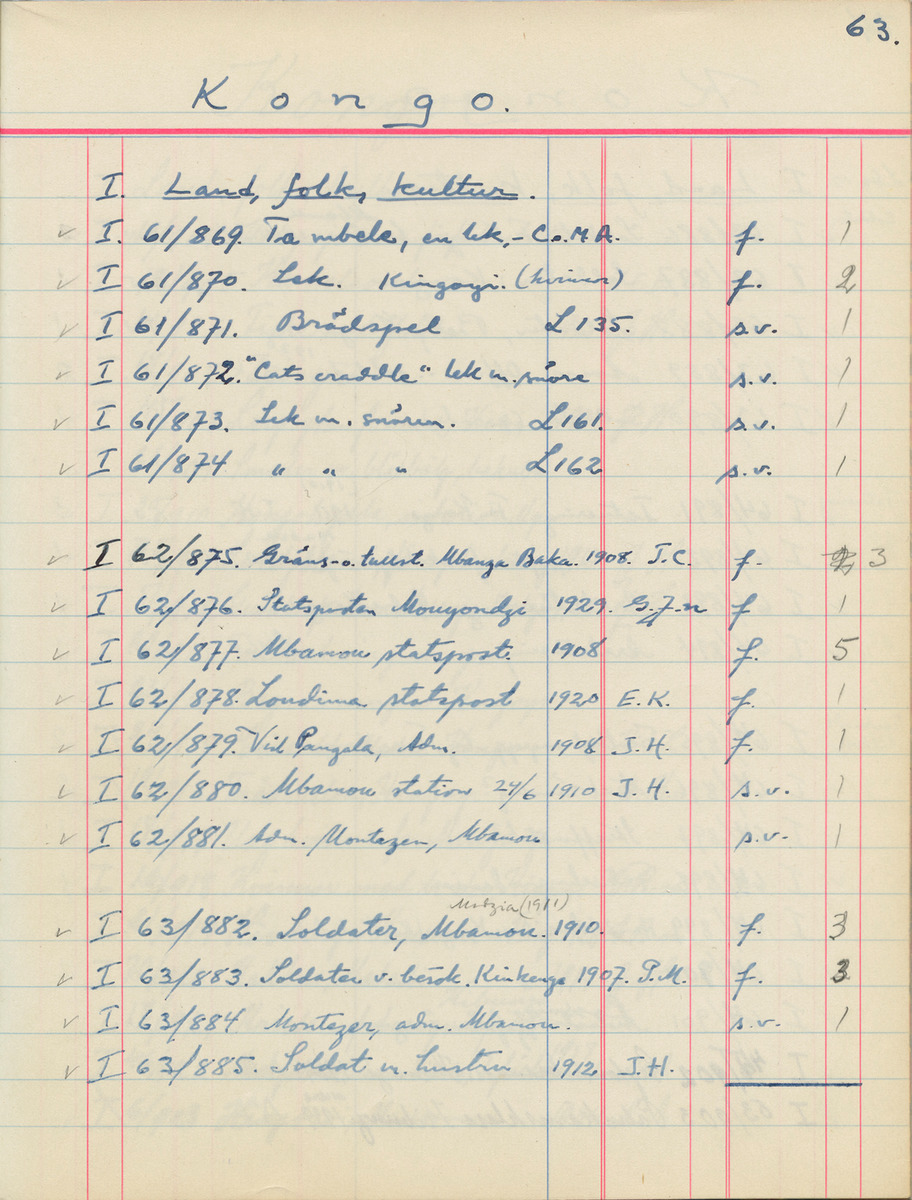 63.
Kongo.
I. Land, folk, kultur.
I. 61/869. Ta mbele, en lek, - C.o.M.A. f. 1
I 61/870. Lek. Kingoyi. (kvinnor) f. 2
I 61/871. Brädspel L 135. s.v. 1
I 61/872. "Cats craddle" lek m. snöre s.v. 1
I 61/873. Lek m. snören. L 161. s.v. 1
I 61/874 " " " L 162 s.v. 1
I 62/875. Gräns- o. tullst. Mbanza Baka. 1908. J.C. f. 3
I 62/876. Statsposten Mouyondzi 1929. f 1
I 62/877. Mbamou statspost. 1908 f. 5
I 62/878. Loudima statspost 1920 E.K. f. 1
I 62/879. Vid Pangala, Adm. 1908 J.H. f. 1
I 62/880. Mbamou station 24/6 1910 J.H. s.v. 1
I 62/881. Adm. Montezer, Mbamou s.v. 1
(1911)
I 63/882. Soldater, Mbamou. 1910. f. 3
I 63/883. Soldater v. besök. Kinkenge 1907. P.M. f. 3
I 63/884 Montezer, adm. Mbamou. s.v. 1
I 63/885. Soldat m. hustru 1912 J.H.